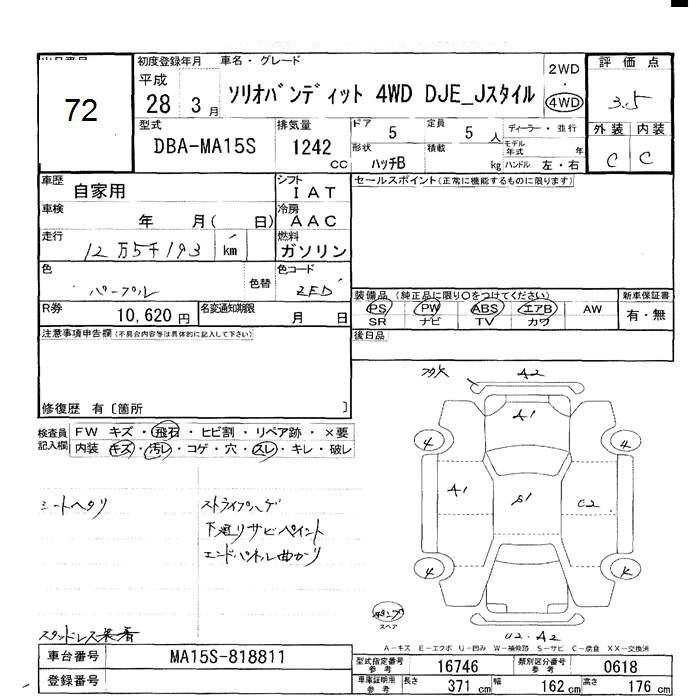 72
初度登録年月 車名・グレード 評価点
平成 28 3月 ソリオバンディット 4WD DJE_Jスタイル 2WD 4WD 3.5
型式 排気量 ドア 5 定員 5人 ディーラー・並行 外装 内装
DBA-MA15S 1242 CC 形状 ハッチB 積載 kg モデル年式 年 ハンドル 左・右 C C
車歴 自家用 シフト IAT セールスポイント(正常に機能するものに限ります)
車検 年 月( 日) 冷房 AAC
走行 12万5千193 km 燃料 ガソリン
色 パープル 色替 色コード ZED
装備品 (純正品に限り○をつけてください) 新車保証書
R券 10,620円 名変通知期限 月 日 PS PW ABS エアB AW 有・無
SR ナビ TV カワ
注意事項申告欄(不具合内容等は具体的に記入して下さい) 後日品
修復歴 有〔箇所 〕
検査員記入欄 FW キズ・飛石・ヒビ割・リペア跡・×要
内装 キズ・汚レ・コゲ・穴・スレ・キレ・破レ
A2
A1
4 4
A1 S1 C2
4
シートヘタリ ストライプハゲ
下廻リサビペイント
エンドパネル曲がり
スペア
U2.A2
A-キズ E-エクボ U-凹み W-補修跡 S-サビ C-腐食 XX-交換済
車台番号 MA15S-818811 型式指定番号 参考 16746 類別区分番号 参考 0618
登録番号 車庫証明用 参考 長さ 371 cm 幅 162 cm 高さ 176 cm